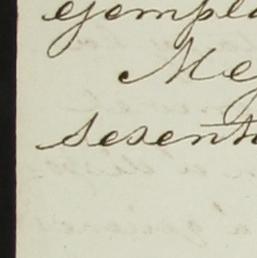 ejempla
Me
sesent